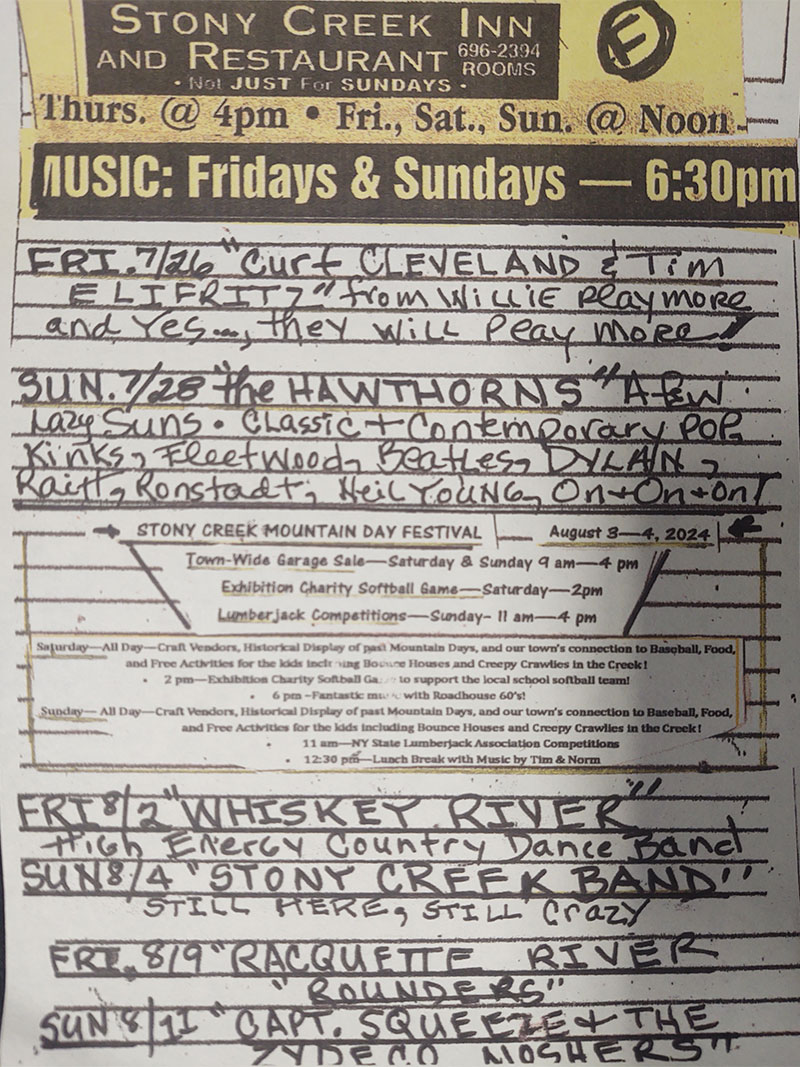 STONY CREEK INN
AND RESTAURANT 696-2394
ROOMS
• Not JUST For SUNDAYS •
F
Thurs. @ 4pm • Fri., Sat., Sun. @ Noon
MUSIC: Fridays & Sundays — 6:30pm
FRI. 7/26 "Curt CLEVELAND & Tim
ELIFRITZ" from WiLLiE PLAYmore
and Yes..., they WiLL PLAY more!
SUN. 7/28 "the HAWTHORNS" A FEW
LAZY SUNS • CLASSiC + Contemporary POP,
Kinks, FLEETWOOD, BEATLES, DYLAN,
Raitt, Ronstadt, NEiL YOUNG, On+On+on!
STONY CREEK MOUNTAIN DAY FESTIVAL August 3—4, 2024
Town-Wide Garage Sale—Saturday & Sunday 9 am—4 pm
Exhibition Charity Softball Game—Saturday—2pm
Lumberjack Competitions—Sunday- 11 am—4 pm
Saturday—All Day—Craft Vendors, Historical Display of past Mountain Days, and our town's connection to Baseball, Food,
and Free Activities for the kids Bounce Houses and Creepy Crawlies in the Creek!
• 2 pm—Exhibition Charity Softball to support the local school softball team!
• 6 pm -Fantastic with Roadhouse 60's!
Sunday— All Day—Craft Vendors, Historical Display of past Mountain Days, and our town's connection to Baseball, Food,
and Free Activities for the kids including Bounce Houses and Creepy Crawlies in the Creek!
• 11 am—NY State Lumberjack Association Competitions
• 12:30 pm—Lunch Break with Music by Tim & Norm
FRI 8/2 "WHISKEY RIVER"
High ENERGY Country Dance Band
SUN 8/4 "STONY CREEK BAND"
STILL HERE, STILL CrAZY
FRI. 8/9 "RACQUETTE RIVER
ROUNDERS"
SUN 8/11 "CAPT. SQUEEZE & THE
ZYDECO MOSHERS"